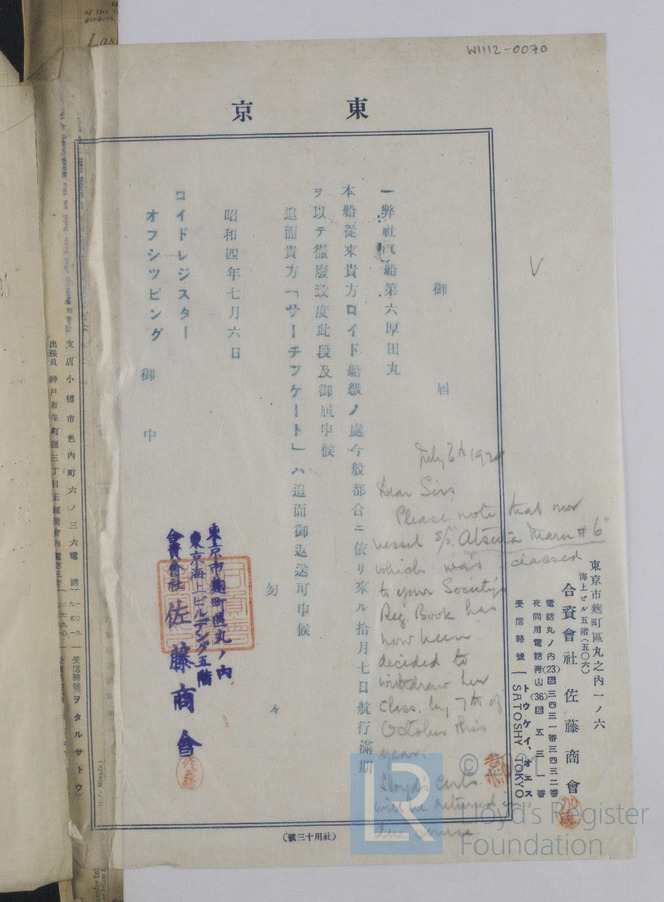 W1112-0070
東京
御届
一弊社汽船第六厚田丸
本船従来貴方ロイド船級ノ處今般都合ニ依リ來ル拾月七日航行滿期
ヲ以テ撤廢致度此段及御屆申候
追而貴方「サーチフケート」ハ追而御返送可申候
勿々
昭和四年七月六日
ロイドレジスター
オフシツピング
御中
東京市麹町區丸ノ内
東京海上ビルデング五階
合資會社 佐藤商會
July 6th 1929
Dear Sirs
Please note that our
vessel S/S "Atsuta Maru #6"
which was classed
to your Society's
Reg. Book has
now been
decided to
withdraw her
class by 7th of
October this
year.
Lloyd's Certs
will be returned in
due course
東京市麹町區丸之内一ノ六
海上ビル五階(五〇六)
合資會社 佐藤商會
電話丸ノ内(23)三四三一番三四三二番
夜間用電話青山(36)五三一番
受信略號 トウケイ、オエス
SATOSHY TOKYO
支店 小樽市色内町六ノ三六 電話
受信略號(ヲタルサトウ)
出張員 神戸市
(社用十三號)
© 2021
LR
Lloyd's Register
Foundation